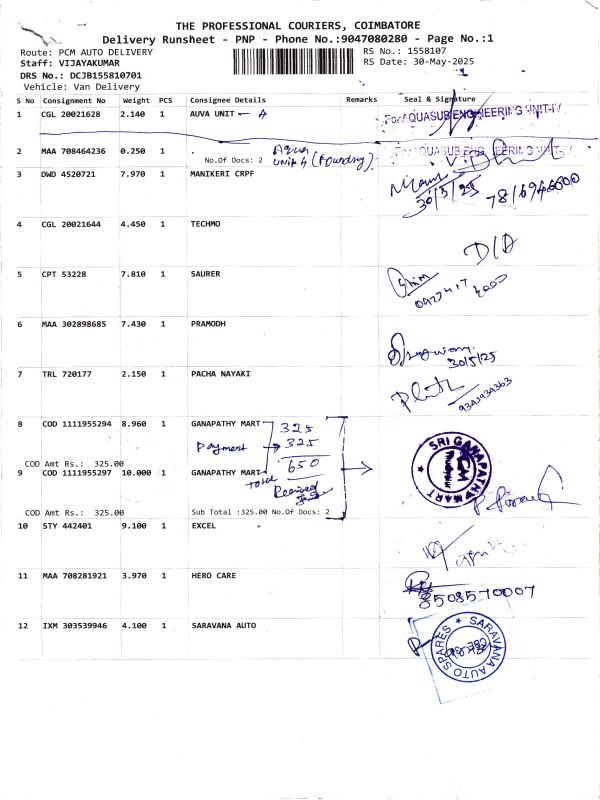 THE PROFESSIONAL COURIERS, COIMBATORE
Delivery Runsheet - PNP - Phone No.:9047080280 - Page No.:1
Route: PCM AUTO DELIVERY
RS No.: 1558107
Staff: VIJAYAKUMAR
RS Date: 30-May-2025
DRS No.: DCJB155810701
Vehicle: Van Delivery
S No Consignment No Weight PCS Consignee Details Remarks Seal & Signature
1 CGL 20021628 2.140 1 AUVA UNIT - 4
For AQUASUB ENGINEERING UNIT-IV
2 MAA 708464236 0.250 1 . Aqua
No.Of Docs: 2 Unit 4 (Foundry).
AQUASUB ENGINEERING UNIT-IV
3 DWD 4520721 7.970 1 MANIKERI CRPF
4 CGL 20021644 4.450 1 TECHMO
D/A
5 CPT 53228 7.810 1 SAURER
6 MAA 302898685 7.430 1 PRAMODH
30/5/25
7 TRL 720177 2.150 1 PACHA NAYAKI
8 COD 1111955294 8.960 1 GANAPATHY MART 325
Payment → 325
COD Amt Rs.: 325.00
9 COD 1111955297 10.000 1 GANAPATHY MART
Total 650
Received
SRI GANAPATHY MART
COD Amt Rs.: 325.00 Sub Total :325.00 No.Of Docs: 2
10 STY 442401 9.100 1 EXCEL
11 MAA 708281921 3.970 1 HERO CARE
8508570007
12 IXM 303539946 4.100 1 SARAVANA AUTO
SARAVANA AUTO SPARES